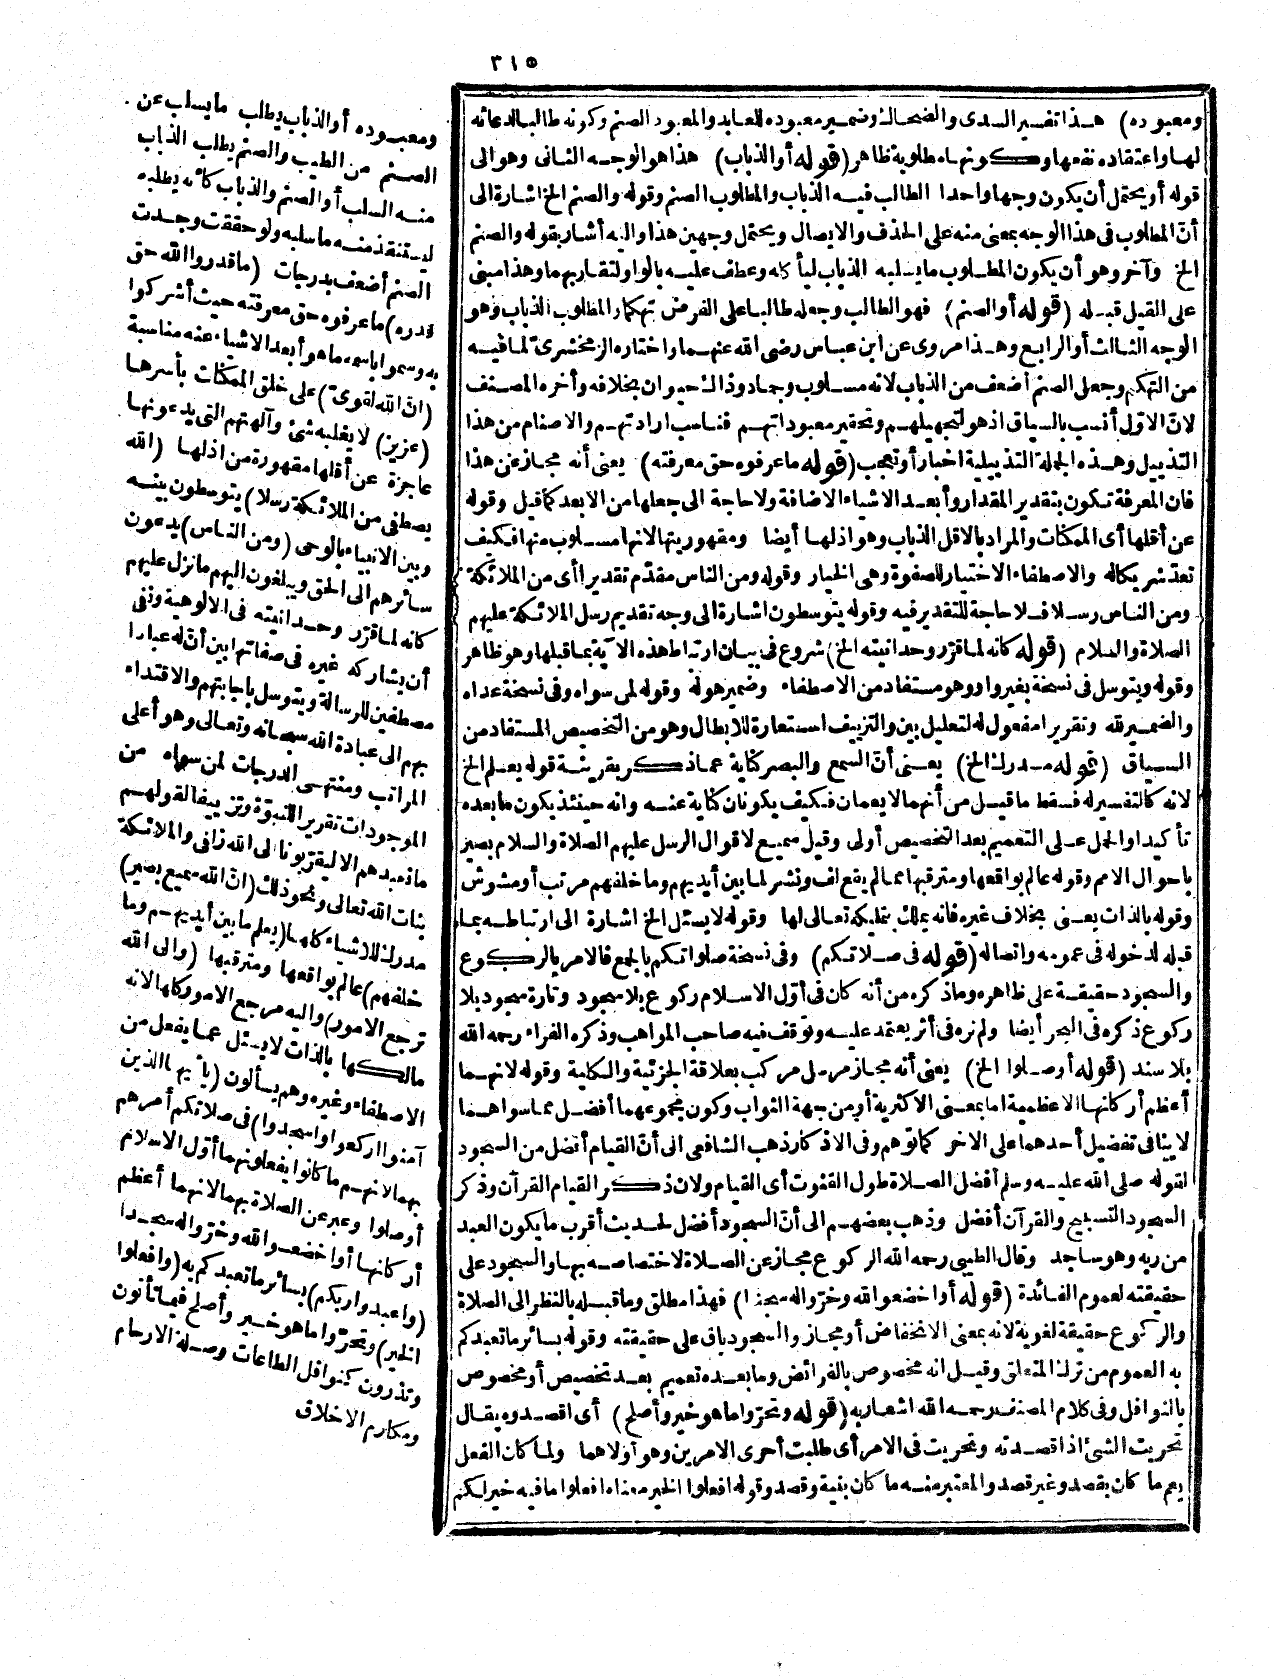 ٣١٥
ومعبوده) هذا تفسير السدى والضحاك وضمير معبوده للعابد والمعبود الصنم وكونه طالبا لدعائه
لها واعتقاده نفعها وكونها مطلوبة ظاهر (قوله أو الذباب) هذا هو الوجه الثانى وهو الى
قوله أو يحتمل أن يكون وجها واحدا الطالب فيه الذباب والمطلوب الصنم وقوله والصنم الخ اشارة الى
أنّ المطلوب فى هذا الوجه بمعنى منه على الحذف والايصال ويحتمل وجهين هذا واليه أشار بقوله والصنم
الخ وآخر وهو أن يكون المطلوب ما يسلبه الذباب ليأكله وعطف عليه بالواو لتقاربهما وهذا مبنى
على القيل قبله (قوله أو الصنم) فهو الطالب وجعله طالبا على الفرض تهكما والمطلوب الذباب وهو
الوجه الثالث أو الرابع وهذا مروى عن ابن عباس رضى الله عنهما واختاره الزمخشرىّ لما فيه
من التهكم وجعل الصنم أضعف من الذباب لانه مسلوب وجماد وذا حيوان بخلافه وأخره المصنف
لانّ الاوّل أنسب بالسياق اذ هو لتجهيلهم وتحقير معبوداتهم فناسب ارادتهم والاصنام من هذا
التذييل وهذه الجملة التذييلية اخبار أو تعجب (قوله ما عرفوه حق معرفته) يعنى أنه مجاز عن هذا
فان المعرفة تكون بتقدير المقدار وأبعد الاشياء الاضافة ولا حاجة الى جعلها من الابعد كما قيل وقوله
عن أقلها أى الممكنات والمراد بالاقل الذباب وهو اذلها أيضا ومقهوريتها لانها مسلوب منها فكيف
تعدّ شريكا له والاصطفاء الاختيار للصفوة وهى الخيار وقوله ومن الناس مقدّم تقديرا أى من الملائكة
ومن الناس رسلا فلا حاجة للتقدير فيه وقوله يتوسطون اشارة الى وجه تقديم رسل الملائكة عليهم
الصلاة والسلام (قوله كانه لما قرّر وحدانيته الخ) شروع فى بيان ارتباط هذه الآية بما قبلها وهو ظاهر
وقوله ويتوسل فى نسخة بغير واو وهو مستفاد من الاصطفاء وضمير هو له وقوله لمن سواه وفى نسخة عداه
والضمير لله وتقريرا مفعول له لتعليل بين والتزييف استعارة للابطال وهو من التخصيص المستفاد من
السياق (قوله مدرك الخ) يعنى أنّ السمع والبصر كناية عما ذكر بقرينة قوله يعلم الخ
لانه كالتفسير له فسقط ما قيل من أنهما لا يعمان فكيف يكونان كناية عنه وانه حينئذ يكون ما بعده
تأكيدا والحمل على التعميم بعد التخصيص أولى وقيل سميع لاقوال الرسل عليهم الصلاة والسلام بصير
باحوال الامم وقوله عالم بواقعها ومترقبها عالم يقع لف ونشر لما بين أيديهم وما خلفهم مرتب أو مشوش
وقوله بالذات يعنى بخلاف غيره فانه يملك بتمليكه تعالى لها وقوله لا يسئل الخ اشارة الى ارتباطه بما
قبله لدخوله فى عمومه واتصاله (قوله فى صلاتكم) وفى نسخة صلواتكم بالجمع فالامر بالركوع
والسجود حقيقة على ظاهره وما ذكره من أنه كان فى أوّل الاسلام ركوع بلا سجود وتارة سجود بلا
ركوع ذكره فى البحر أيضا ولم نره فى أثر يعتمد عليه وتوقف فيه صاحب المواهب وذكره الفراء رحمه الله
بلا سند (قوله أو صلوا الخ) يعنى أنه مجاز مرسل مركب بعلاقة الجزئية والكلية وقوله لانهما
أعظم أركانها الاعظمية اما بمعنى الاكثرية أو من جهة الثواب وكون مجموعهما أفضل مما سواهما
لا ينافى تفضيل أحدهما على الآخر كما توهم وفى الاذكار ذهب الشافعى الى أنّ القيام أفضل من السجود
لقوله صلى الله عليه وسلم أفضل الصلاة طول القنوت أى القيام ولان ذكر القيام القرآن وذكر
السجود التسبيح والقرآن أفضل وذهب بعضهم الى أنّ السجود أفضل لحديث أقرب ما يكون العبد
من ربه وهو ساجد وقال الطيبى رحمه الله الركوع مجاز عن الصلاة لاختصاصه بها والسجود على
حقيقته لعموم الفائدة (قوله أو اخضعوا لله وخرّوا له سجدا) فهذا مطلق وما قبله بالنظر الى الصلاة
والركوع حقيقة لغوية لانه بمعنى الانخفاض أو مجاز والسجود باق على حقيقته وقوله بسائر ما تعبدكم
به العموم من ترك المتعلق وقيل انه مخصوص بالفرائض وما بعده تعميم بعد تخصيص أو مخصوص
بالنوافل وفى كلام المصنف رحمه الله اشعار به (قوله وتحرّوا ما هو خير وأصلح) أى اقصدوه يقال
تحريت الشئ اذا قصدته وتحريت فى الامر أى طلبت أحرى الامرين وهو أولاهما ولما كان الفعل
يعم ما كان بقصد وغير قصد والمعتبر منه ما كان بنية وقصد وقوله افعلوا الخير معناه افعلوا ما فيه خير لكم
ومعبوده أو الذباب يطلب ما يسلب عن
الصنم من الطيب والصنم يطلب الذباب
منه السلب أو الصنم والذباب كأنه يطلبه
ليستنقذ منه ما سلبه ولو حققت وجدت
الصنم أضعف بدرجات (ما قدروا الله حق
قدره) ما عرفوه حق معرفته حيث أشركوا
به وسموا باسمه ما هو أبعد الاشياء عنه مناسبة
(انّ الله لقوىّ) على خلق الممكنات بأسرها
(عزيز) لا يغلبه شئ وآلهتهم التى يدعونها
عاجزة عن أقلها مقهورة من اذلها (الله
يصطفى من الملائكة رسلا) يتوسطون بينه
وبين الانبياء بالوحى (ومن الناس) يدعون
سائرهم الى الحق ويبلغون اليهم ما نزل عليهم
كانه لما قرّر وحدانيته فى الالوهية ونفى
أن يشاركه غيره فى صفاتها بين أنّ له عبادا
مصطفين للرسالة ويتوسل باجابتهم والاقتداء
بهم الى عبادة الله سبحانه وتعالى وهو أعلى
المراتب ومنتهى الدرجات لمن سواه من
الموجودات تقريرا للنبوّة وتزييفا لقولهم
ما نعبدهم الا ليقرّبونا الى الله زلفى والملائكة
بنات الله تعالى ونحو ذلك (انّ الله سميع بصير)
مدرك للاشياء كلها (يعلم ما بين أيديهم وما
خلفهم) عالم بواقعها ومترقبها (والى الله
ترجع الامور) واليه مرجع الامور كلها لانه
مالكها بالذات لا يسئل عما يفعل من
الاصطفاء وغيره وهم يسألون (يا أيها الذين
آمنوا اركعوا واسجدوا) فى صلاتكم أمرهم
بهما لانهم ما كانوا يفعلونهما أوّل الاسلام
أو صلوا وعبر عن الصلاة بهما لانهما أعظم
أركانها أو اخضعوا لله وخرّوا له سجدا
(واعبدوا ربكم) بسائر ما تعبدكم به (وافعلوا
الخير) وتحرّوا ما هو خير وأصلح فيما تأتون
وتذرون كنوافل الطاعات وصلة الارحام
ومكارم الاخلاق